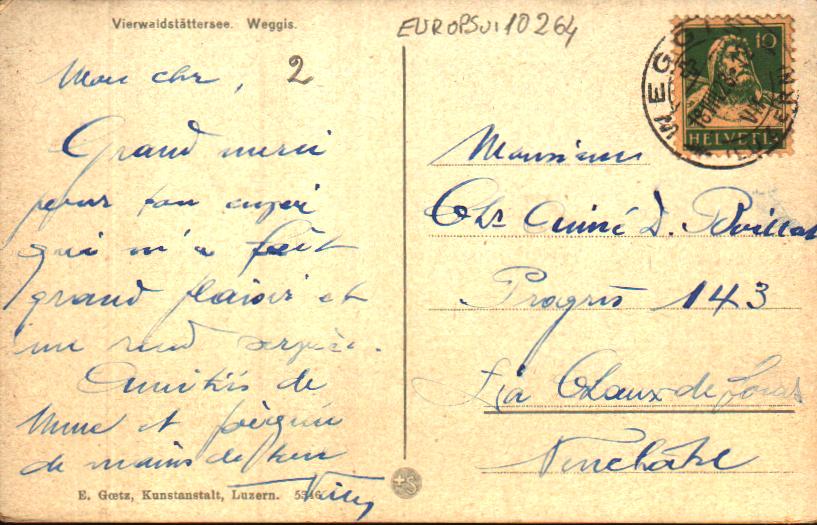 Vierwaldstättersee. Weggis.
EUROPSUI 10264
2
Mon cher,
Grand merci
pour ton
qui m'a fait
grand plaisir et
me rend
Amitiés de
Mme et poignée
de mains de ton
Willy
E. Gœtz, Kunstanstalt, Luzern. 5346
Monsieur
Chs Aimé D. Boillat
Progrès 143
La Chaux-de-Fonds
Neuchâtel
WEGGIS
LUZERN
10
HELVETIA